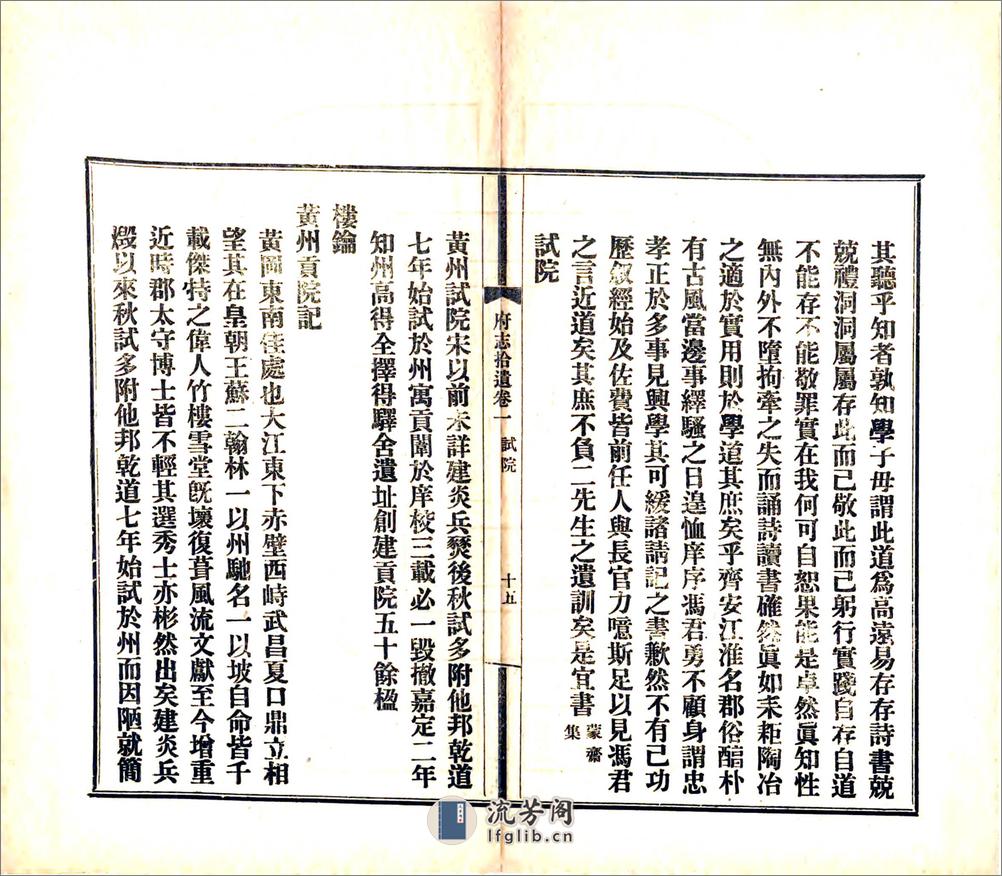 其聽乎知者孰知學子毋謂此道爲高遠易存存詩書兢
兢禮洞洞屬屬存此而已敬此而已躬行實踐自存自道
不能存不能敬罪實在我何可自恕果能是卓然眞知性
無內外不墮拘牽之失而誦詩讀書確然眞如耒耜陶冶
之適於實用則於學道其庶矣乎齊安江淮名郡俗醕朴
有古風當邊事繹騷之日遑恤庠序馮君勇不顧身謂忠
孝正於多事見興學其可緩諸請記之書歉然不有己功
歷叙經始及佐費皆前任人與長官力噫斯足以見馮君
之言近道矣其庶不負二先生之遺訓矣是宜書蒙齋集
試院
府志拾遺卷一 試院 十五
黃州試院宋以前未詳建炎兵燹後秋試多附他邦乾道
七年始試於州寓貢闈於庠校三載必一毀撤嘉定二年
知州高得全擇得驛舍遺址創建貢院五十餘楹
樓鑰
黃州貢院記
黃岡東南佳處也大江東下赤壁西峙武昌夏口鼎立相
望其在皇朝王蘇二翰林一以州馳名一以坡自命皆千
載傑特之偉人竹樓雪堂旣壞復葺風流文獻至今增重
近時郡太守博士皆不輕其選秀士亦彬然出矣建炎兵
燬以來秋試多附他邦乾道七年始試於州而因陋就簡
流芳阁
lfglib.cn